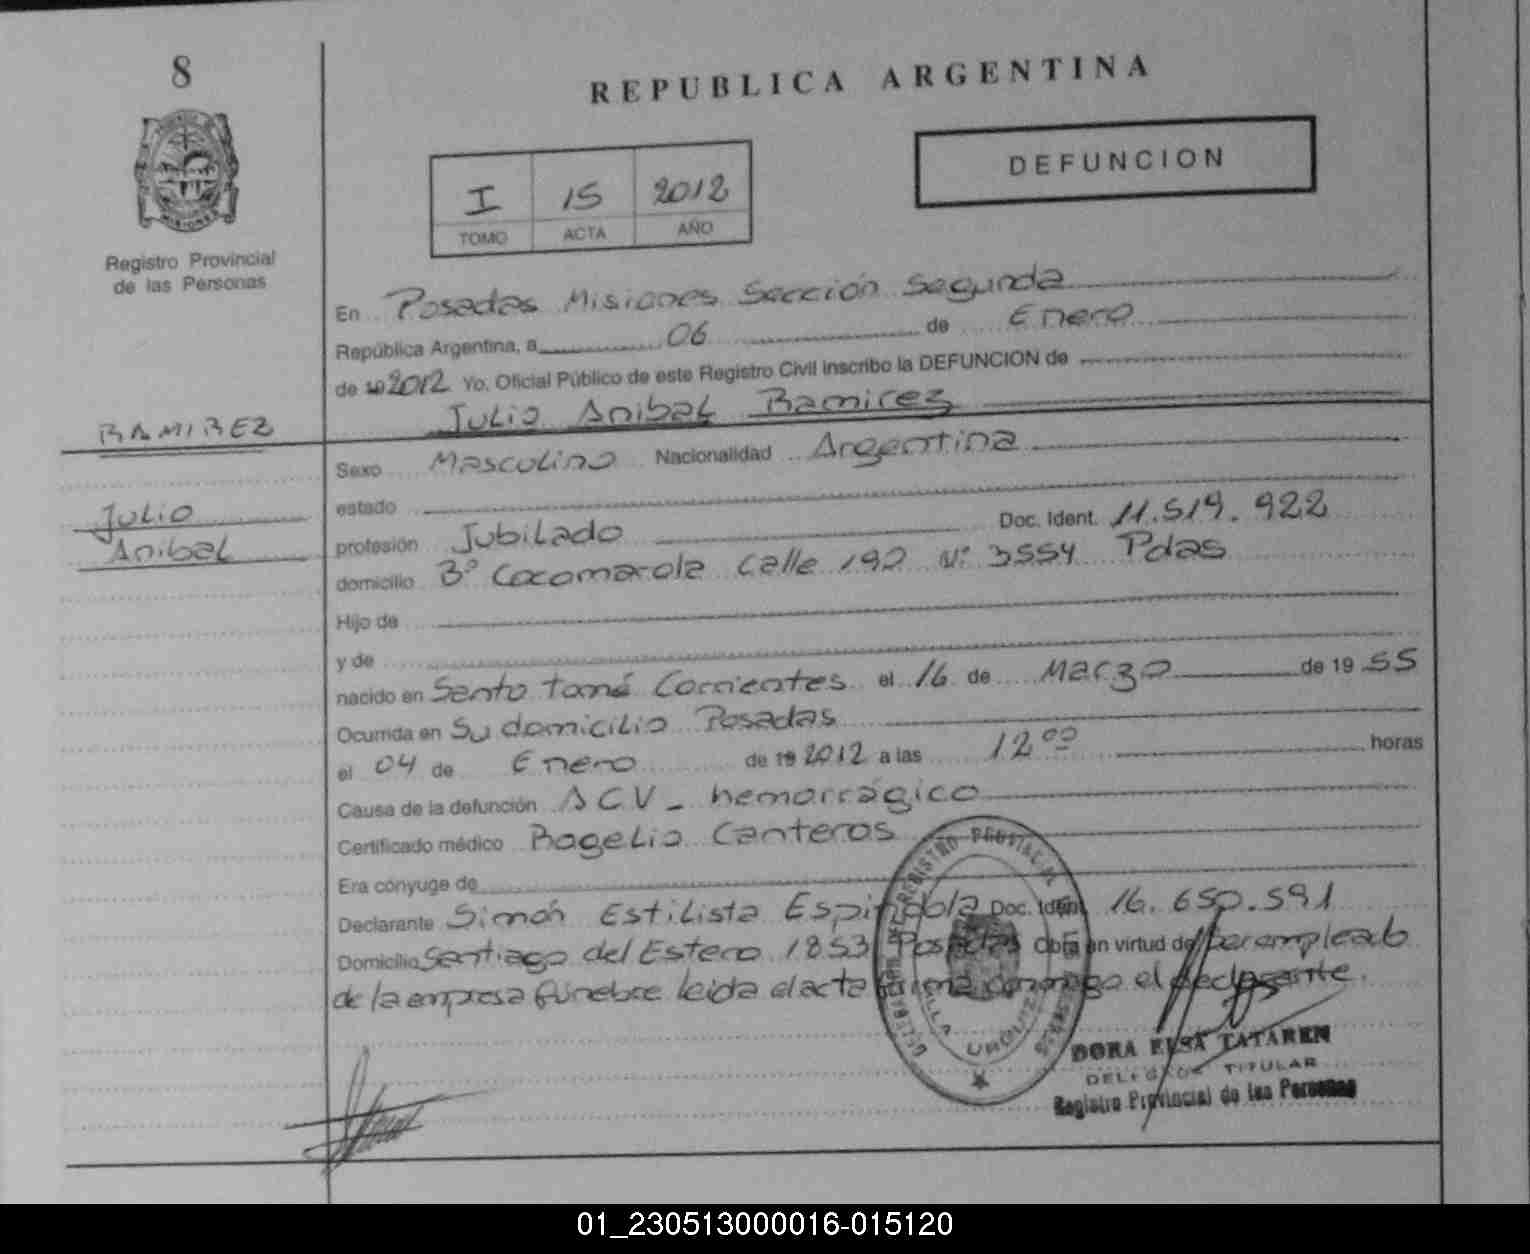 8
REPUBLICA ARGENTINA
DEFUNCION
I 15 2012
TOMO ACTA AÑO
MISIONES
Registro Provincial
de las Personas
En Posadas Misiones Sección Segunda
República Argentina, a 06 de Enero
de 19 2012 Yo. Oficial Público de este Registro Civil inscribo la DEFUNCION de
Julio Anibal Ramirez
RAMIREZ
Julio
Anibal
Sexo Masculino Nacionalidad Argentina
estado
profesión Jubilado Doc. Ident. 11.519.922
domicilio B° Cocomarola Calle 192 N° 3554 Pdas
Hijo de
y de
nacido en Santo tomé Corrientes el 16 de Marzo de 19 55
Ocurrida en Su domicilio Posadas
el 04 de Enero de 19 2012 a las 12 00 horas
Causa de la defunción ACV - hemorrágico
Certificado médico Rogelio Canteros
Era cónyuge de
Declarante Simón Estilista Doc. Ident. 16.650.591
Domicilio Santiago del Estero 1853 Posadas Obra en virtud de ser empleado
de la empresa fúnebre leida el acta firma conmigo el declarante.
REGISTRO PROVINCIAL
VILLA URQUIZA
DORA ELSA TATAREN
DELEGADA TITULAR
Registro Provincial de las Personas
01_230513000016-015120